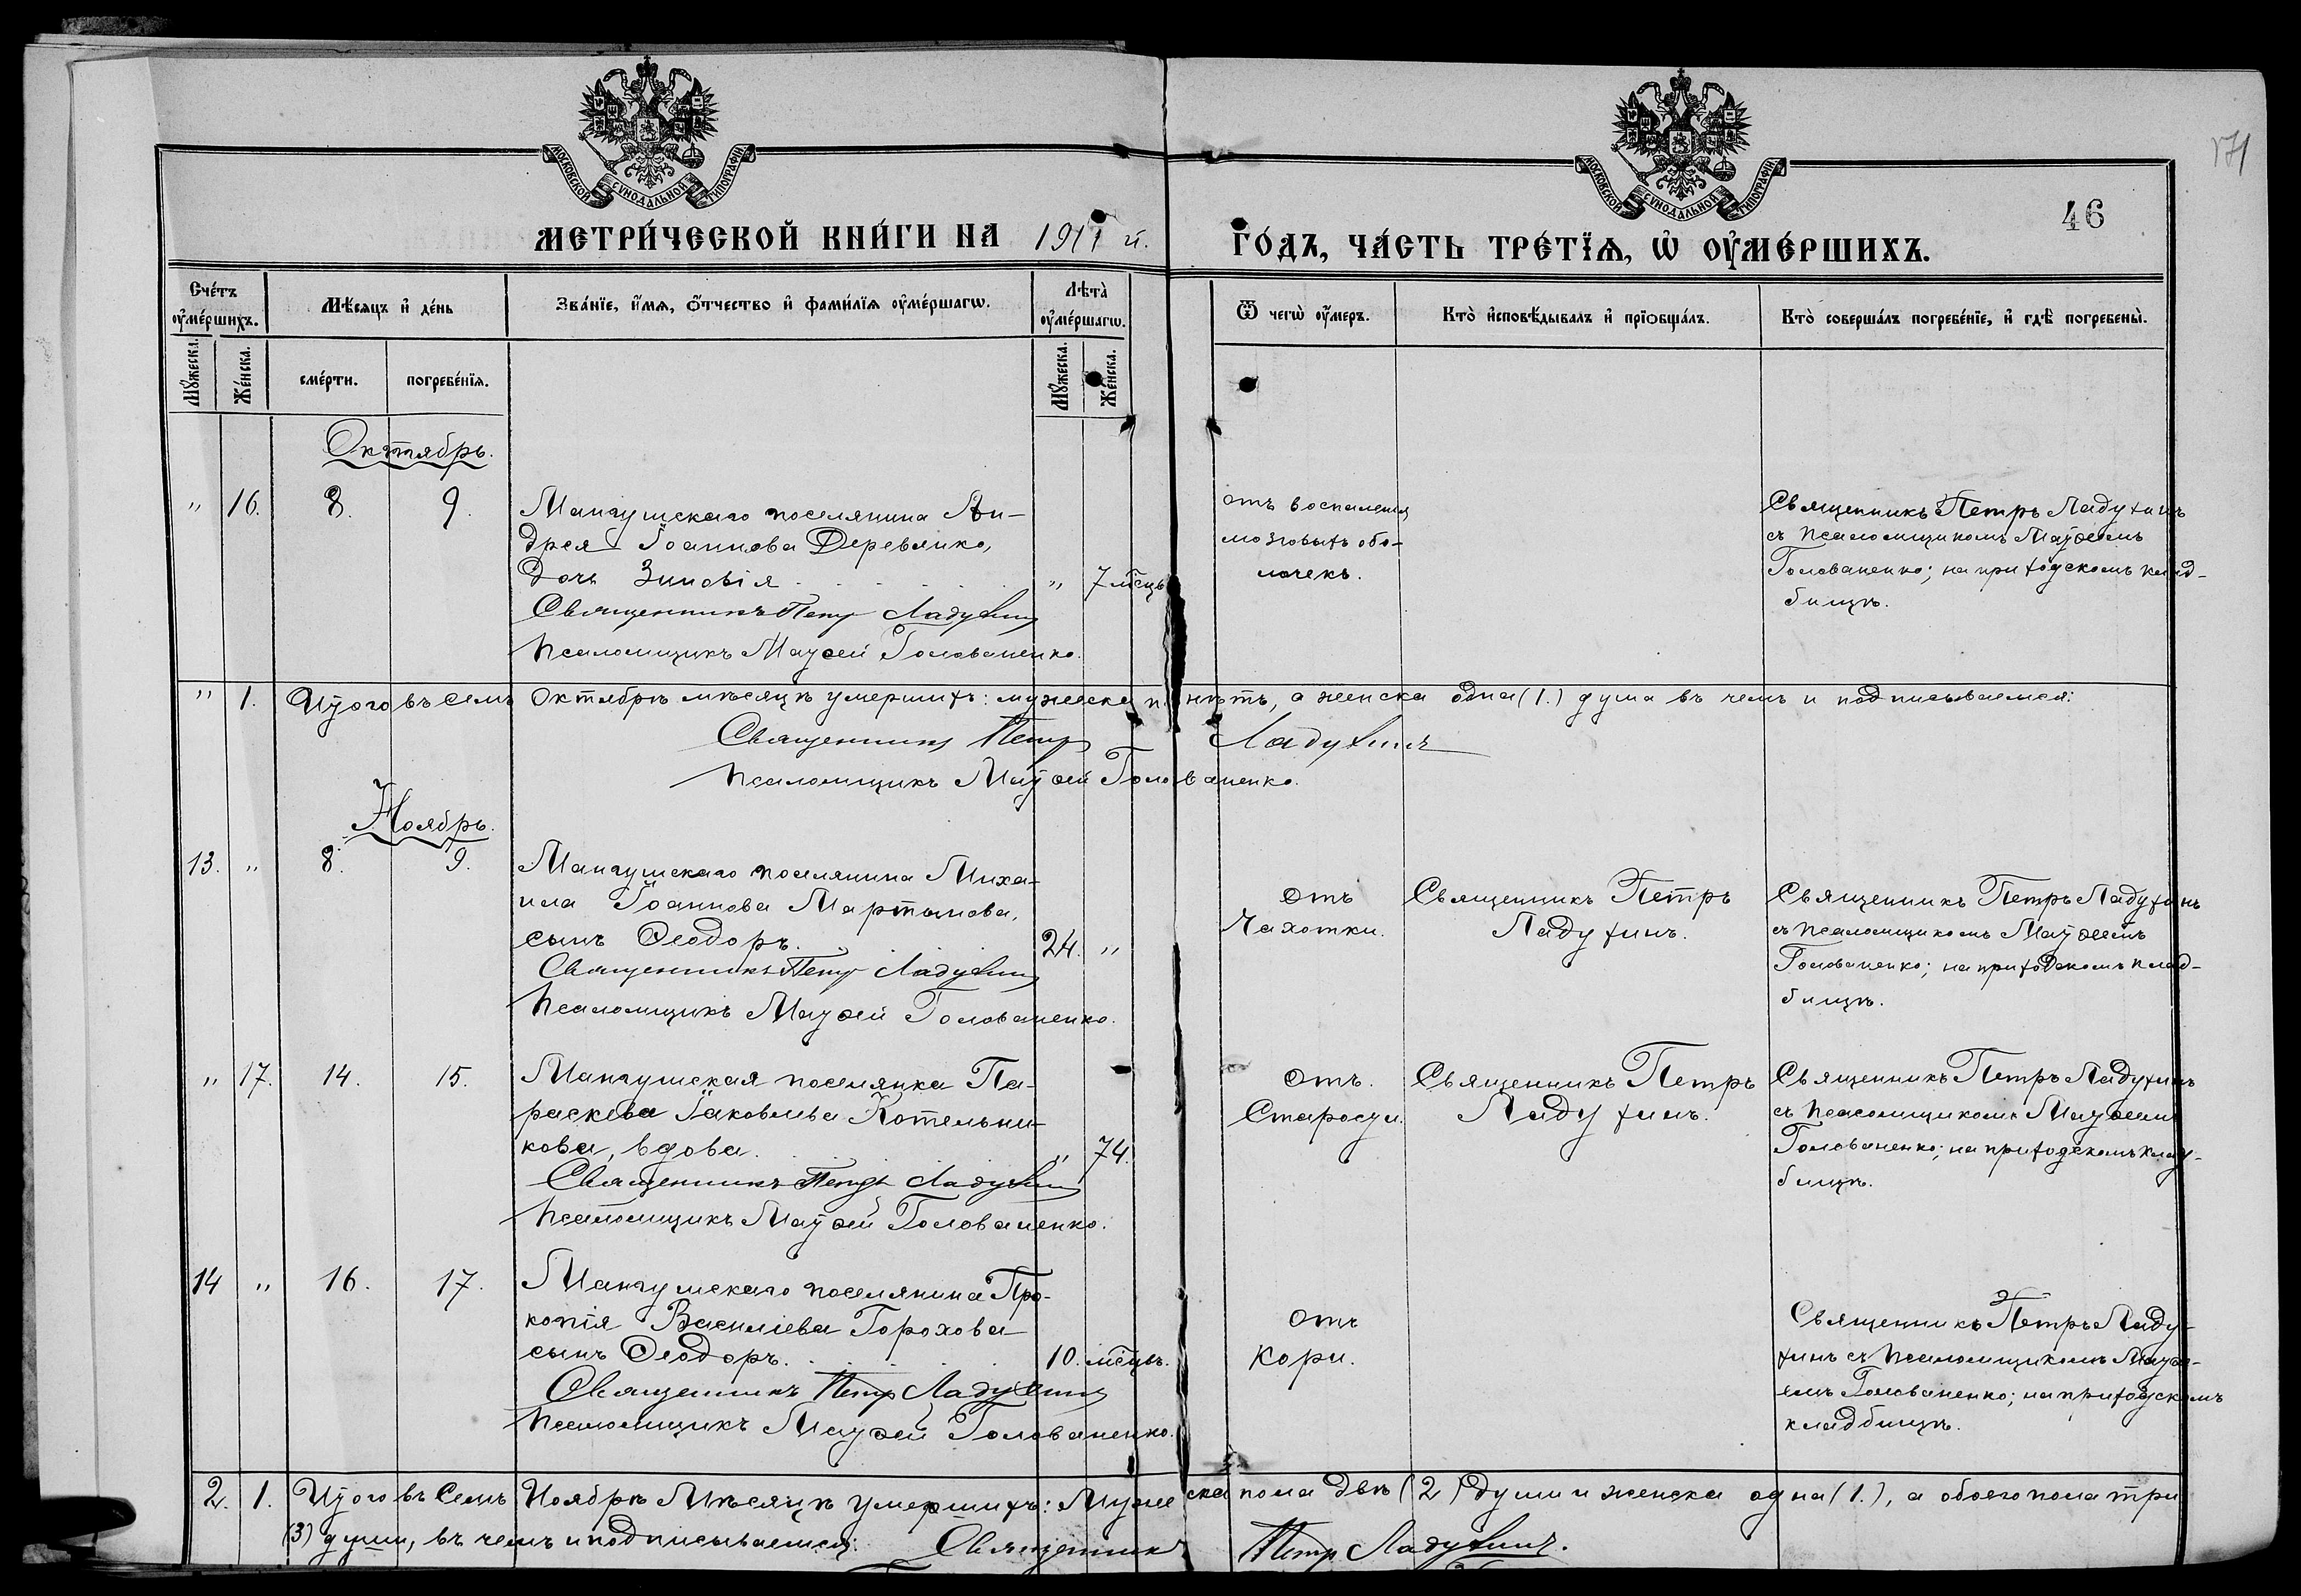 МОСКОВСКОЙ СѴНОДАЛЬНОЙ ТИПОГРАФІИ
МОСКОВСКОЙ СѴНОДАЛЬНОЙ ТИПОГРАФІИ
171
46
МЕТРИ́ЧЕСКОЙ КНИ́ГИ НА 1911 й. ГО́ДЪ, ЧА́СТЬ ТРЕ́ТЇѦ, Ѡ ОУ҆МЕ́РШИХЪ.
Сче́тъ оу҆ме́ршихъ.
Мѣ́сяцъ и҆ де́нь
Зва́нїе, и҆́мя, ѻ҆́тчество и҆ фами́лїя оу҆ме́ршагѡ.
Лѣта̀ оу҆ме́ршагѡ.
Ѿ чегѡ̀ оу҆́меръ.
Кто̀ и҆сповѣ́дывалъ и҆ прїобща́лъ.
Кто̀ соверша́лъ погребе́нїе, и҆ гдѣ̀ погребены̀.
Мꙋ́жеска.
Же́нска.
сме́рти.
погребе́нїя.
Мꙋ́жеска.
Же́нска.
Октябрь.
" 16. 8. 9.
Мангушскаго поселянина Ан-
дрея Іоаннова Деревянко,
дочь Зиновія " 7 мсцъ
Священникъ Петръ Ладухинъ
Псаломщикъ Матѳей Голованенко.
отъ воспаленія
мозговыхъ обо-
лочекъ.
Священникъ Петръ Ладухинъ
съ псаломщикомъ Матѳеемъ
Голованенко; на приходскомъ клад-
бищѣ.
" 1. Итого въ семъ Октябрѣ мѣсяцѣ умершихъ: мужеска п. нѣтъ, а женска одна (1.) душа въ чемъ и подписываемся:
Священникъ Петръ Ладухинъ
Псаломщикъ Матѳей Голованенко.
Ноябрь.
13. " 8. 9.
Мангушскаго поселянина Миха-
ила Іоаннова Мартынова,
сынъ Ѳеодоръ. 24. "
Священникъ Петръ Ладухинъ
Псаломщикъ Матѳей Голованенко.
Отъ
Чахотки.
Священникъ Петръ
Ладухинъ.
Священникъ Петръ Ладухинъ
съ псаломщикомъ Матѳеемъ
Голованенко; на приходскомъ клад-
бищѣ.
" 17. 14. 15.
Мангушская поселянка Па-
раскева Іаковлева Котельни-
кова, вдова. " 74.
Священникъ Петръ Ладухинъ
Псаломщикъ Матѳей Голованенко.
Отъ
Старости.
Священникъ Петръ
Ладухинъ.
Священникъ Петръ Ладухинъ
съ псаломщикомъ Матѳеемъ
Голованенко; на приходскомъ клад-
бищѣ.
14 " 16. 17.
Мангушскаго поселянина Про-
копія Василіева Горохова
сынъ Ѳеодоръ. 10. мсцвъ.
Священникъ Петръ Ладухинъ
Псаломщикъ Матѳей Голованенко.
Отъ
Кори.
Священникъ Петръ Ладу-
хинъ съ псаломщикомъ Матѳе-
емъ Голованенко; на приходскомъ
кладбищѣ.
2. 1. Итого въ семъ Ноябрѣ Мѣсяцѣ умершихъ: Мужеска пола двѣ (2) души и женска одна (1.), а обоего пола три
(3) души, въ чемъ и подписываемся: Священникъ Петръ Ладухинъ.